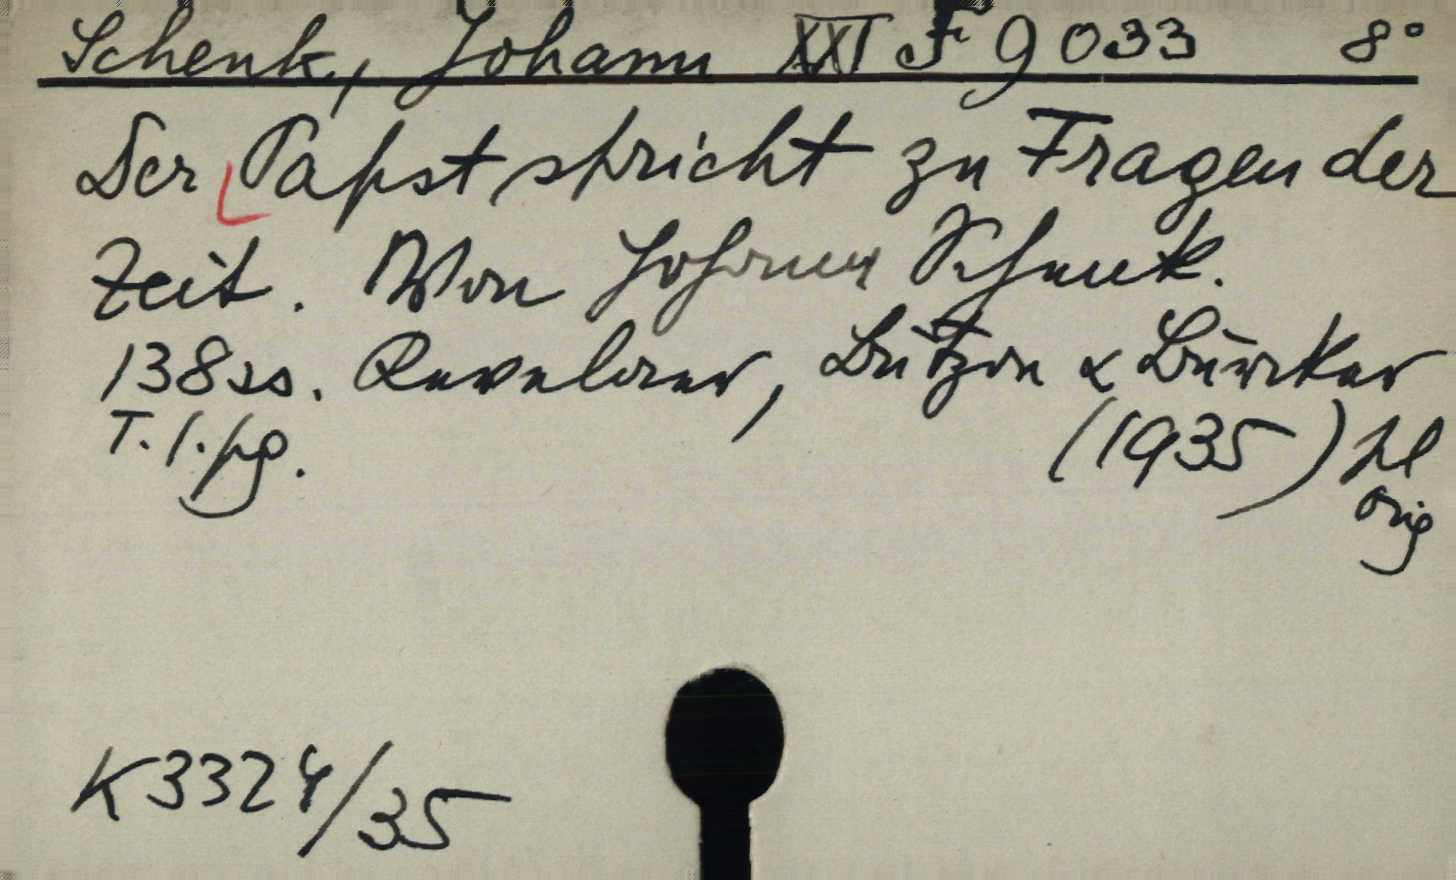 Schenk, Johann XXI F 9 033 8°
Der Papst spricht zu Fragen der
Zeit. Von Johann Schenk.
138 ss. Kevelaer, Butzon & Bercker
T. 1. pg. (1935)
orig
K 3324/35